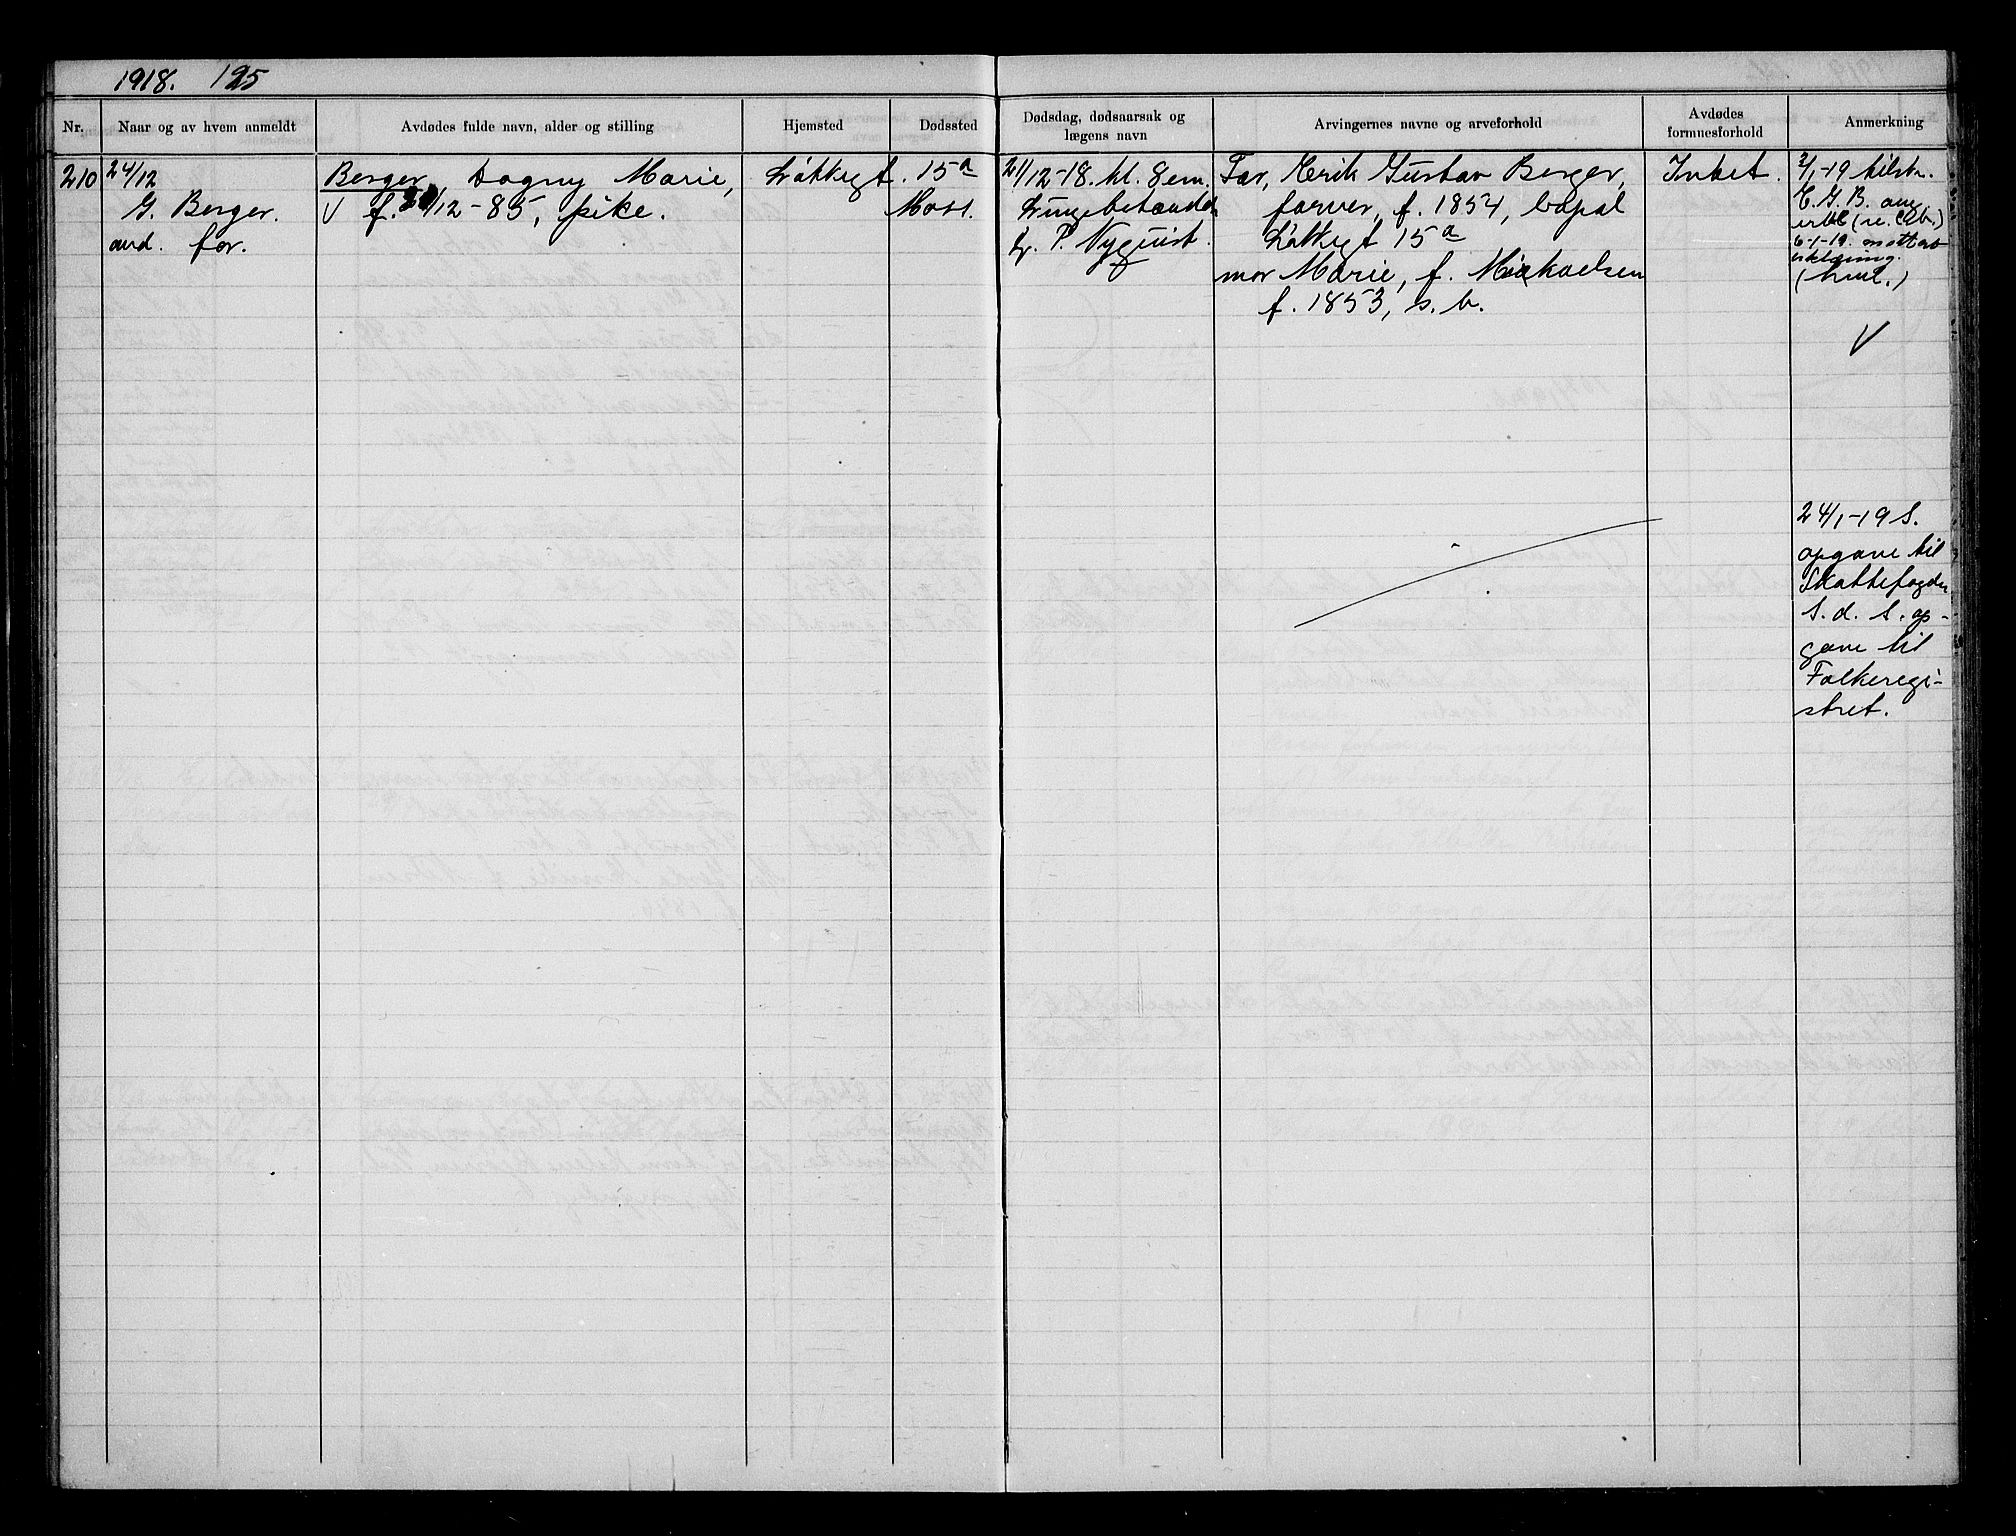 1918. 125
Nr.
Naar og av hvem anmeldt
Avdødes fulde navn, alder og stilling
Hjemsted
Dødssted
Dødsdag, dødsaarsak og
lægens navn
Arvingernes navne og arveforhold
Avdødes
formuesforhold
Anmerkning
210
24/12
G. Berger.
and. far.
Berger, Dagny Marie,
V f. /12-85, pike.
15a
Moss.
21/12-18. kl. 8 em.
Lungebetændelse
P. Nyquist.
Far, Erik Gustav Berger,
farver, f. 1854, bopæl
15a
mor Marie, f. Mickaelsen
f. 1853, s. b.
Intet.
2/1-19 tilskr.
E. G. B. ang.
6-1-19. mottat
erklæring.
V
24/1-19 S.
opgave til
Skattefogden
S. d. S. op-
gave til
Folkeregi-
stret.